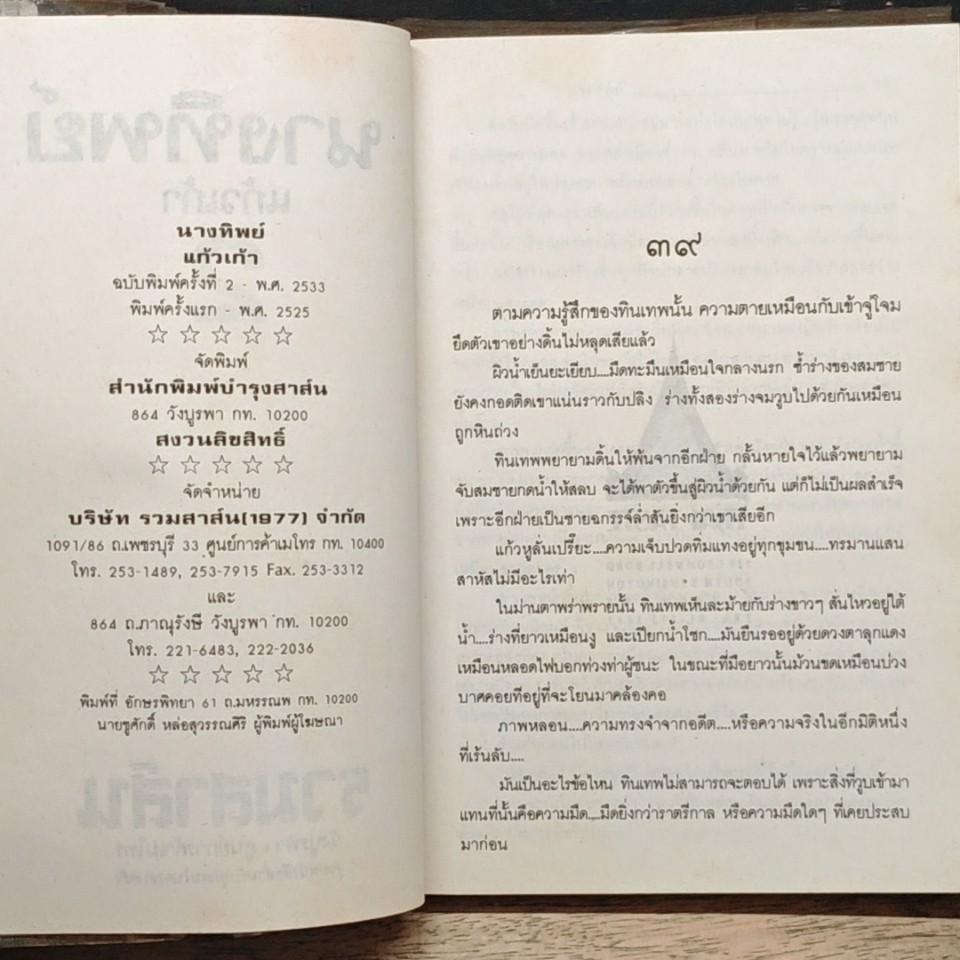 นางทิพย์
แก้วเก้า
ฉบับพิมพ์ครั้งที่ 2 - พ.ศ. 2533
พิมพ์ครั้งแรก - พ.ศ. 2525
☆ ☆ ☆ ☆ ☆
จัดพิมพ์
สำนักพิมพ์บำรุงสาส์น
864 วังบูรพา กท. 10200
สงวนลิขสิทธิ์
☆ ☆ ☆ ☆ ☆
จัดจำหน่าย
บริษัท รวมสาส์น(1977) จำกัด
1091/86 ถ.เพชรบุรี 33 ศูนย์การค้าเมโทร กท. 10400
โทร. 253-1489, 253-7915 Fax. 253-3312
และ
864 ถ.ภาณุรังษี วังบูรพา กท. 10200
โทร. 221-6483, 222-2036
☆ ☆ ☆ ☆ ☆
พิมพ์ที่ อักษรพิทยา 61 ถ.มหรรณพ กท. 10200
นายชูศักดิ์ หล่อสุวรรณศิริ ผู้พิมพ์ผู้โฆษณา
๓๙
ตามความรู้สึกของทินเทพนั้น ความตายเหมือนกับเข้าจู่โจม
ยึดตัวเขาอย่างดิ้นไม่หลุดเสียแล้ว
ผิวน้ำเย็นยะเยียบ....มืดทะมึนเหมือนใจกลางนรก ซ้ำร่างของสมชาย
ยังคงกอดติดเขาแน่นราวกับปลิง ร่างทั้งสองร่างจมวูบไปด้วยกันเหมือน
ถูกหินถ่วง
ทินเทพพยายามดิ้นให้พ้นจากอีกฝ่าย กลั้นหายใจไว้แล้วพยายาม
จับสมชายกดน้ำให้สลบ จะได้พาตัวขึ้นสู่ผิวน้ำด้วยกัน แต่ก็ไม่เป็นผลสำเร็จ
เพราะอีกฝ่ายเป็นชายฉกรรจ์ล่ำสันยิ่งกว่าเขาเสียอีก
แก้วหูลั่นเปรี๊ยะ....ความเจ็บปวดทิ่มแทงอยู่ทุกขุมขน....ทรมานแสน
สาหัสไม่มีอะไรเท่า
ในม่านตาพร่าพรายนั้น ทินเทพเห็นละม้ายกับร่างขาวๆ สั่นไหวอยู่ใต้
น้ำ....ร่างที่ยาวเหมือนงู และเปียกน้ำโชก....มันยืนรออยู่ด้วยดวงตาลุกแดง
เหมือนหลอดไฟบอกท่วงท่าผู้ชนะ ในขณะที่มือยาวนั้นม้วนขดเหมือนบ่วง
บาศคอยทีอยู่ที่จะโยนมาคล้องคอ
ภาพหลอน....ความทรงจำจากอดีต....หรือความจริงในอีกมิติหนึ่ง
ที่เร้นลับ....
มันเป็นอะไรข้อไหน ทินเทพไม่สามารถจะตอบได้ เพราะสิ่งที่วูบเข้ามา
แทนที่นั้นคือความมืด....มืดยิ่งกว่าราตรีกาล หรือความมืดใดๆ ที่เคยประสบ
มาก่อน